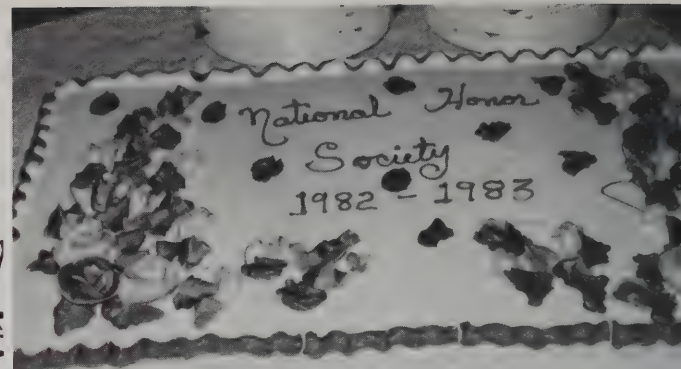 National Honor
Society
1982 - 1983